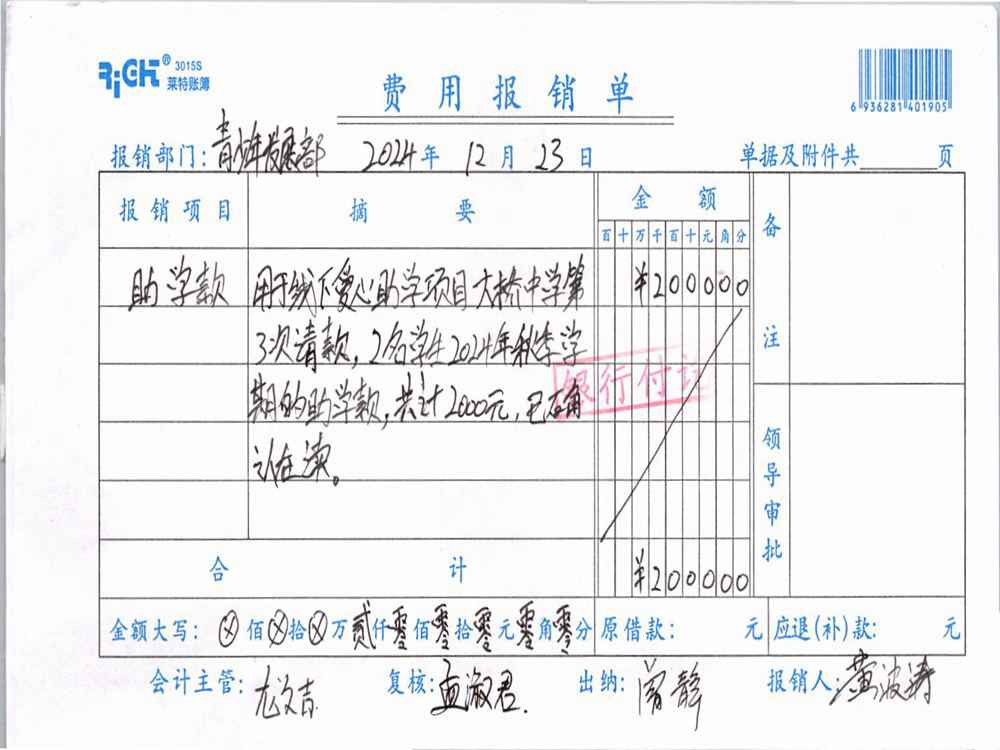 RiGHT® 3015S
莱特账簿
费用报销单
6 936281 401905
报销部门：青少年发展部 2024年12月23日 单据及附件共 页
报销项目 摘要 金额 备注
百十万千百十元角分
助学款 用于线下爱心助学项目大桥中学第 ¥200000
3次请款，2名学生2024年秋季学
期的助学款，共计2000元，已确
认在读。
银行付讫
领导审批
合计 ¥200000
金额大写：ⓧ佰ⓧ拾ⓧ万贰仟零佰零拾零元零角零分 原借款： 元 应退(补)款： 元
会计主管：尤文吉 复核：孟淑君. 出纳：曾静 报销人：黄波涛